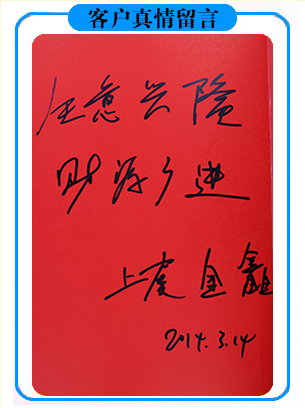 客户真情留言
生意兴隆
财源广进
上虞金鑫
2014.3.14